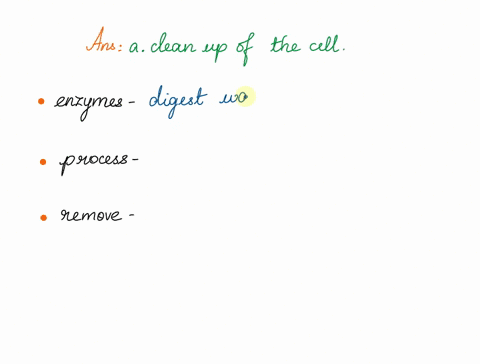 Ans: a. clean up of the cell.
• enzymes - digest wa
• process -
• remove -